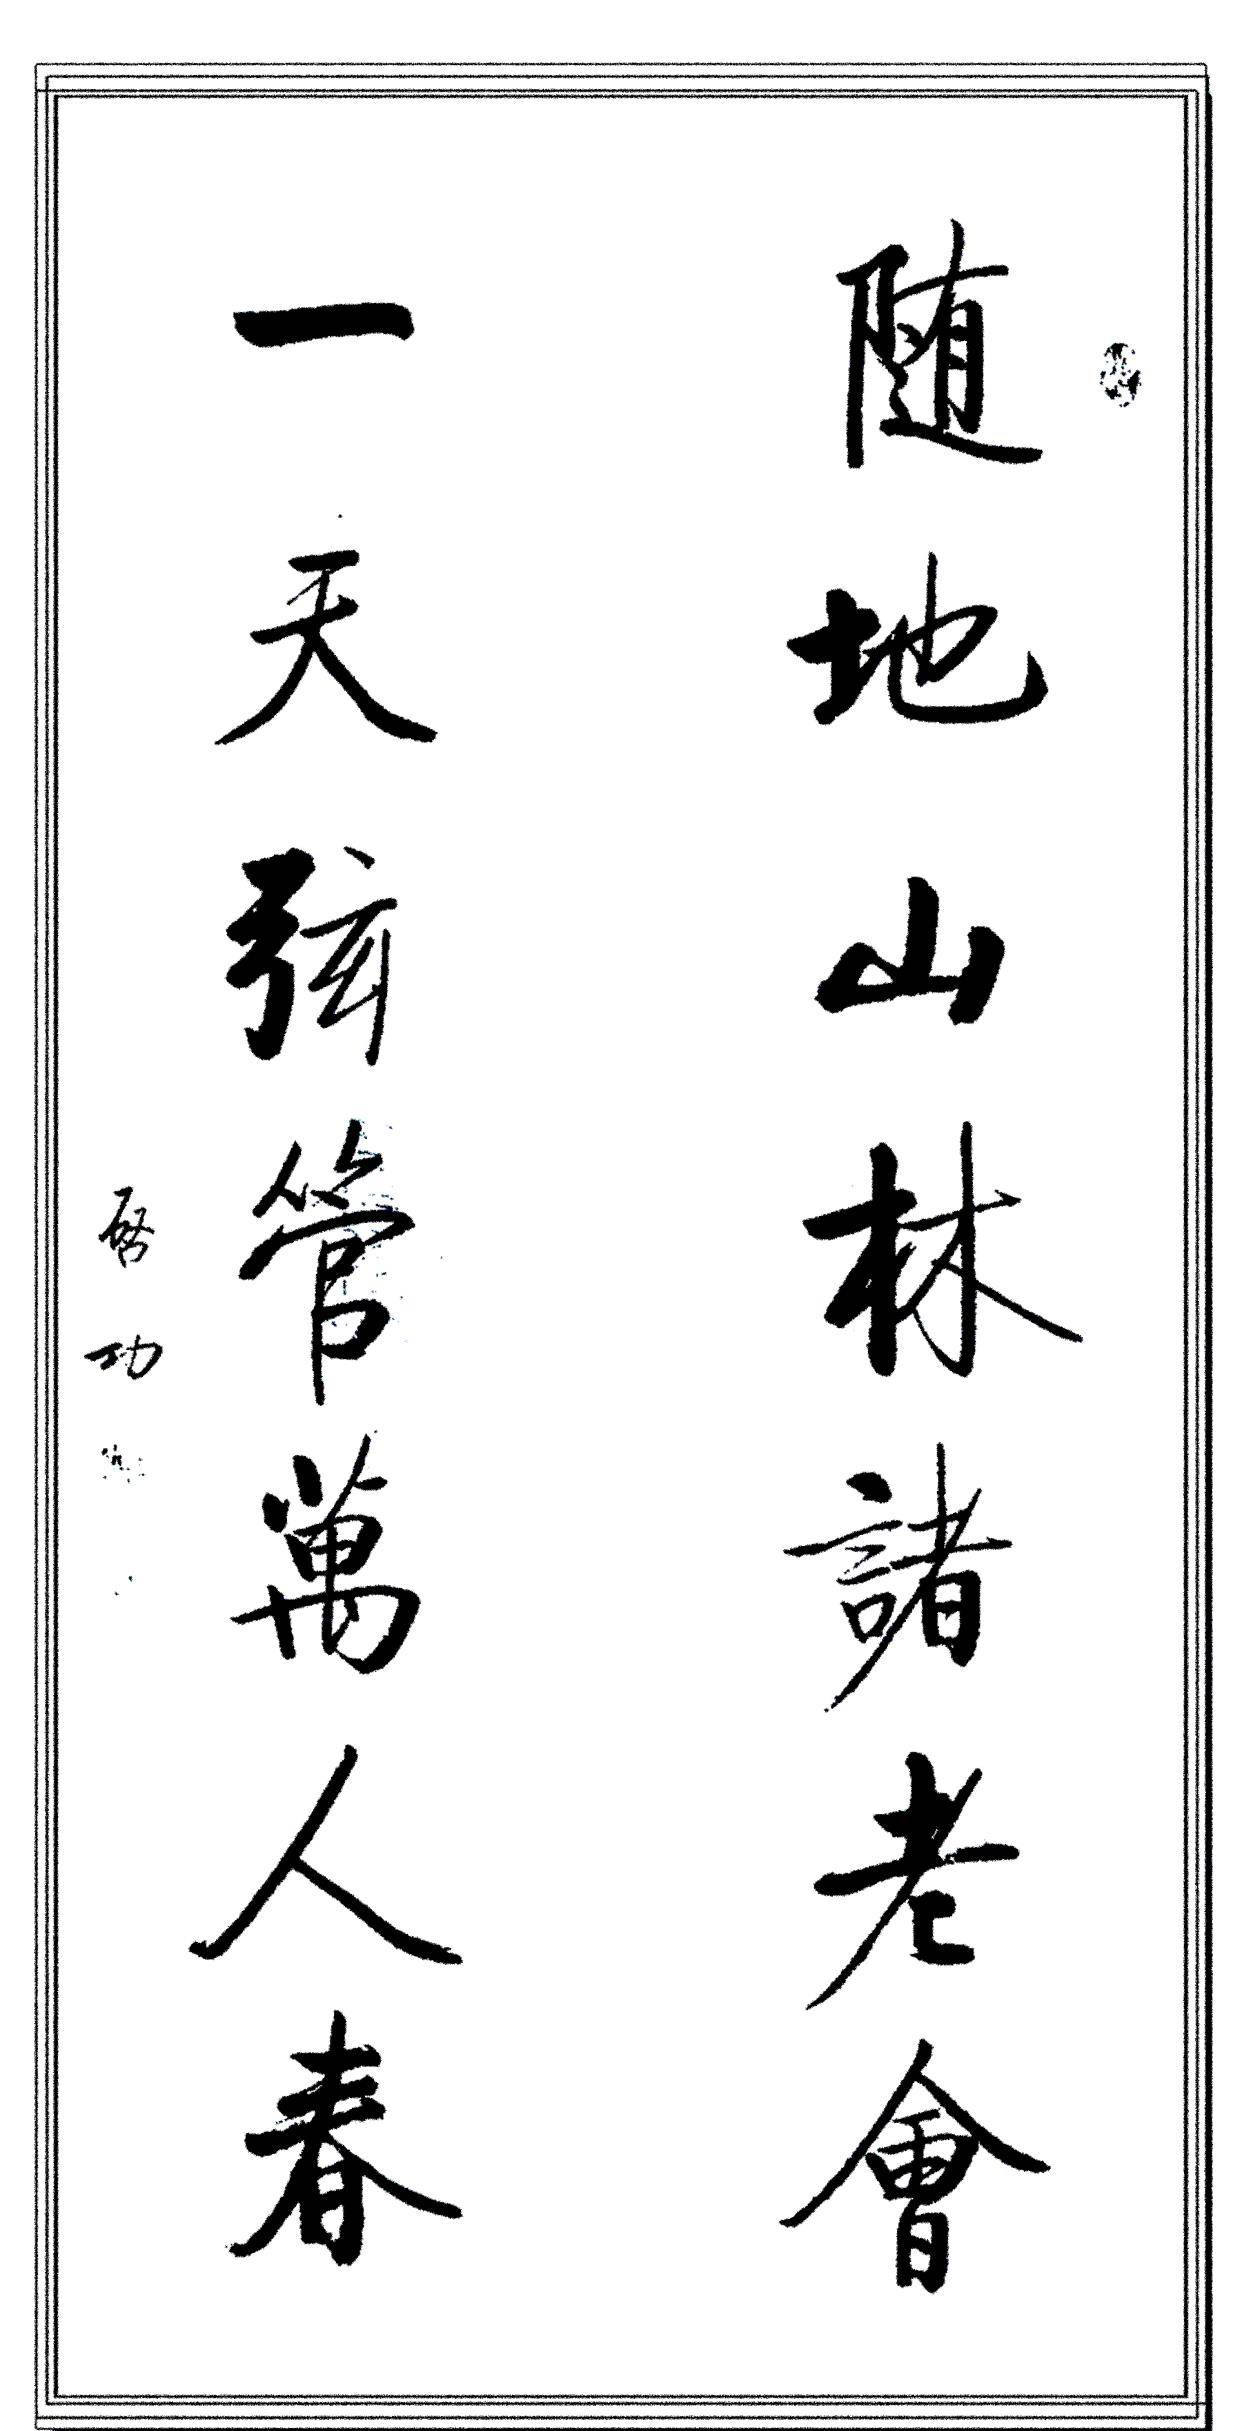 随地山林諸老會
一天弦管萬人春
啓功